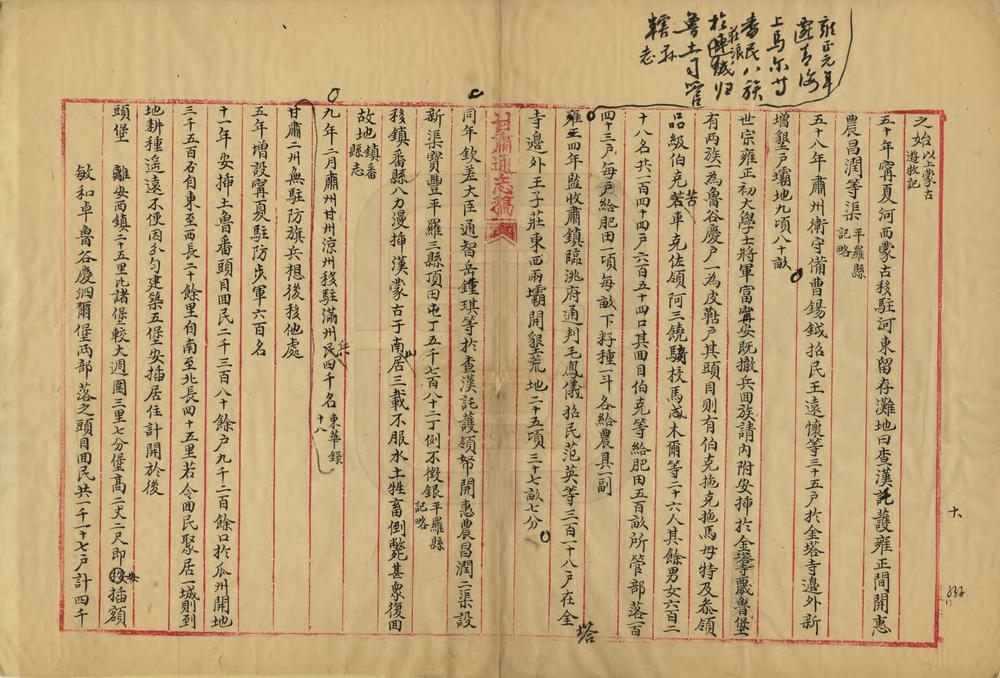 雍正元年
定青海
上馬尔寸
番民八族
莊浪
於連城归
魯土司管
轄 孙
志
之始 以上蒙古
遊牧記
五十年甯夏河西蒙古移駐河東留存灘地曰查漢託護雍正間開惠
農昌潤等渠 平羅縣
記略
五十八年肅州衛守備曹錫鉞招民王遠懷等三十五戶於金塔寺邊外新
增墾戶壩地九項八十畝
世宗雍正初大學士將軍富甯安既撤兵回族請內附安插於金塔寺威魯堡
有兩族一為魯谷慶戶一為皮黏戶其頭目則有伯克拖克拖馬母特及叅領
品級伯克若車克佐領阿三饒騎校馬咸木爾等二十六人其餘男女六百二
苦
十八名共一百四十四戶六百五十四口其回目伯克等給肥田五百畝所管部落一百
四十三戶每戶給肥田一項每畝下籽種一斗各給農具一副
雍正四年監收肅鎮臨洮府通判毛鳳儀招民范英等三百一十八戶在金
塔
寺邊外王子莊東西兩壩開墾荒地二十五項三十七畝七分
甘肅通志稿
同年欽差大臣通智岳鍾琪等於查漢託護領帑開惠農昌潤二渠設
新渠寶豐平羅三縣頂田屯丁五千七百八十二丁例不徵銀 平羅縣
記略
移鎮番縣八力漫插漢蒙古于南居三載不服水土牲畜倒斃甚眾復回
山
故地 鎮番
縣志
九年二月肅州甘州涼州移駐滿州民四千名 東華錄
十八
兵
甘肅二州無駐防旗兵想後移他處
五年增設甯夏駐防步軍六百名
十一年安插土魯番頭目回民二千三百八十餘戶九千二百餘口於瓜州開地
三千五百石自東至西長二十餘里自南至北長四十五里若令回民聚居一城則到
地耕種遙遠不便因分勻建築五堡安插居住計開於後
頭堡 離安西鎮二十五里比諸堡較大週圍三里七分堡高二丈二尺即按插額
安
敏和卓魯谷慶泗爾堡兩部落之頭目回民共一千一十七戶計四千
十八